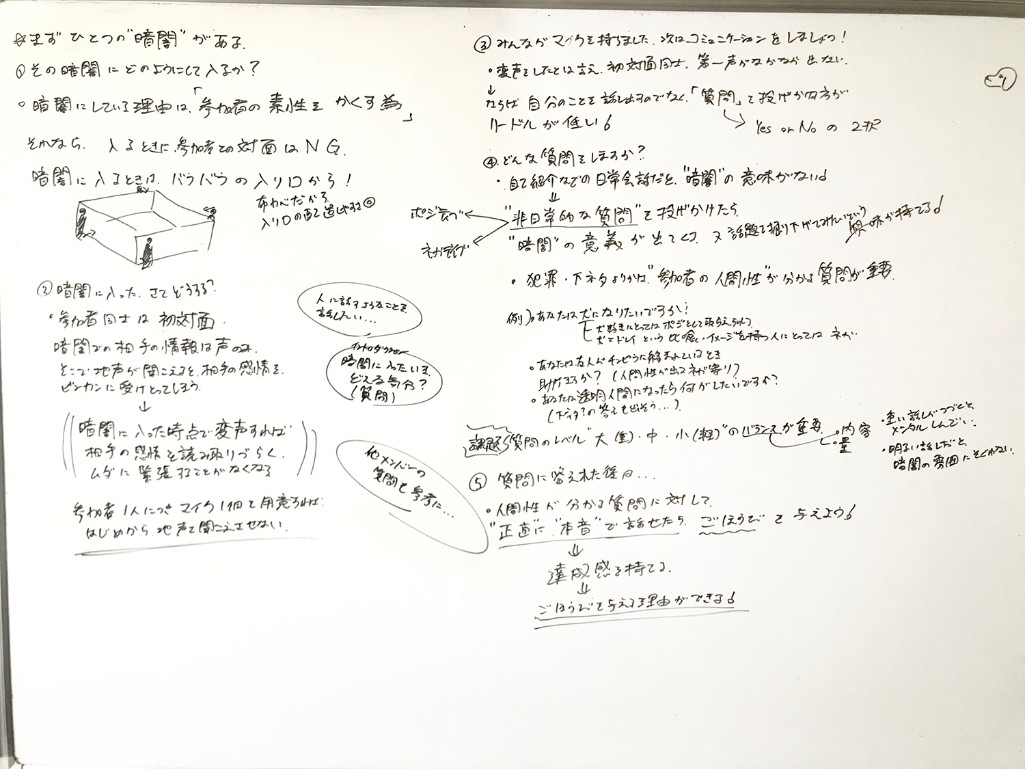 まず ひとつの"暗闇"がある.
① その暗闇にどのようにして入るか?
・暗闇にしている理由は、「参加者の素性をかくす為」
それなら、入るときに参加者との対面はNG.
暗闇に入るときは、バラバラの入り口から!
布かべだから
② 暗闇に入った. さてどうする?
・参加者同士は初対面.
暗闇での相手の情報は声のみ.
そこで地声が聞こえると、相手の感情を
ビンカンに受けとってしまう.
↓
暗闇に入った時点で変声すれば
相手の感情を読み取りづらく.
ムダに緊張することがなくなる
参加者1人につきマイク1個を用意すれば.
はじめから地声を聞こえさせない.
人に話すようなことを
暗闇に入ったいま.
どんな気分?
(質問)
他メンバーの
質問も参考に…
③ みんながマイクを持ちました. 次はコミュニケーションをしましょう!
・変声をしたとは言え、初対面同士. 第一声がなかなか出ない.
↓
ならば自分のことを話し出すのでなく、「質問」を投げかけ方が
ハードルが低い!
→ Yes or No の2択
④ どんな質問をしますか?
・自己紹介などの日常会話だと、"暗闇"の意味がない!
↓
"非日常的な質問"を投げかけたら
ポジティブ
ネガティブ
"暗闇"の意義が出てくる. 又話題を掘り下げてみたいという興味が持てる!
・犯罪・下ネタよりかは"参加者の人間性"が分かる質問が重要.
例) ・あなたは犬になりたいですか?
犬好きにとってはポジとして取らえられて
犬=ドレイという比喩・イメージを持つ人にとってはネガ
・あなたは友人がチンピラに絡まれているとき
助けますか? (人間性が出るネガ寄り)
・あなたは透明人間になったら何がしたいですか?
(下ネタの答えも出そう…)
課題 質問のレベル"大(重)・中・小(軽)"のバランスが重要
・内容
・量
・重い話しがつづくと、
メンタルしんどい…
・明るい話しだと、
暗闇の雰囲気にそぐわない.
⑤ 質問に答えれた後は…
・人間性が分かる質問に対して.
"正直に""本音"で話せたら. ごほうびを与えよう!
⇓
達成感を持てる.
⇓
ごほうびを与える理由ができる!